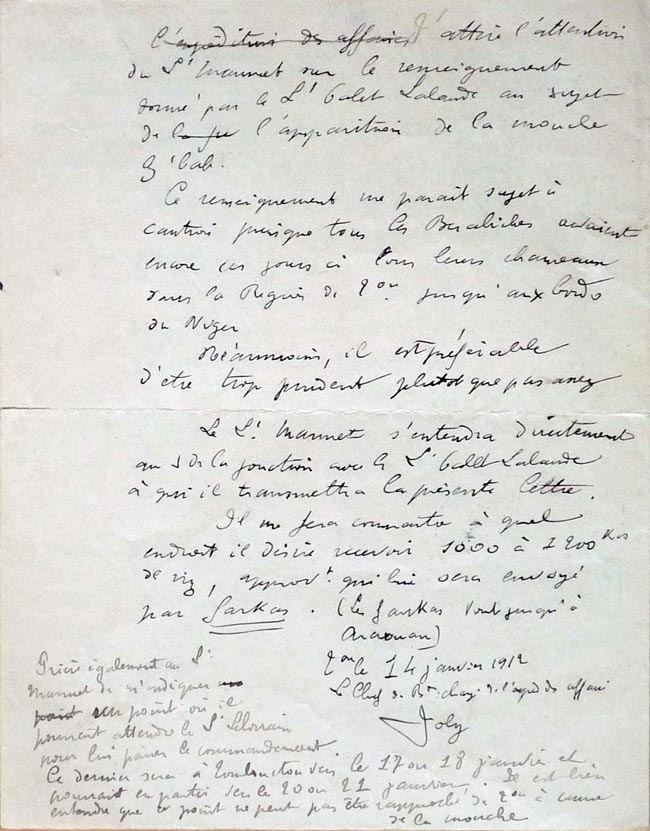 l'expédition des affaires J'attire l'attention
du Lt Mannet sur le renseignement
donné par le Lt Galet Lalande au sujet
de l'apparition de la mouche
Ce renseignement me parait sujet à
caution puisque tous les Berabiches avaient
encore ces jours ci tous leurs chameaux
dans la Région de jusqu'aux bords
du Niger
Néanmoins, il est préférable
d'etre trop prudent plutôt que pas assez
Le Lt Mannet s'entendra directement
au S de la jonction avec le Lt Galet Lalande
à qui il transmettra la présente lettre.
Il me fera connaitre à quel
endroit il désire recevoir 1000 à 1200 Kos
de riz, approvt qui lui sera envoyé
par Laskas. (Les Laskas vont jusqu'à
Araouan)
le 14 janvier 1912
Le Chef de Bon chargé de l'expéd des affaires
Joly
Prière également au Lt
Mannet de m'indiquer
un point où il
pourrait attendre le Lt Lelorrain
pour lui passer le commandement
Ce dernier sera à Tombouctou vers le 17 ou 18 janvier et
pourrait en partir vers le 20 ou 21 janvier. Il est bien
entendu que ce point ne peut pas être rapproché de à cause
de la mouche